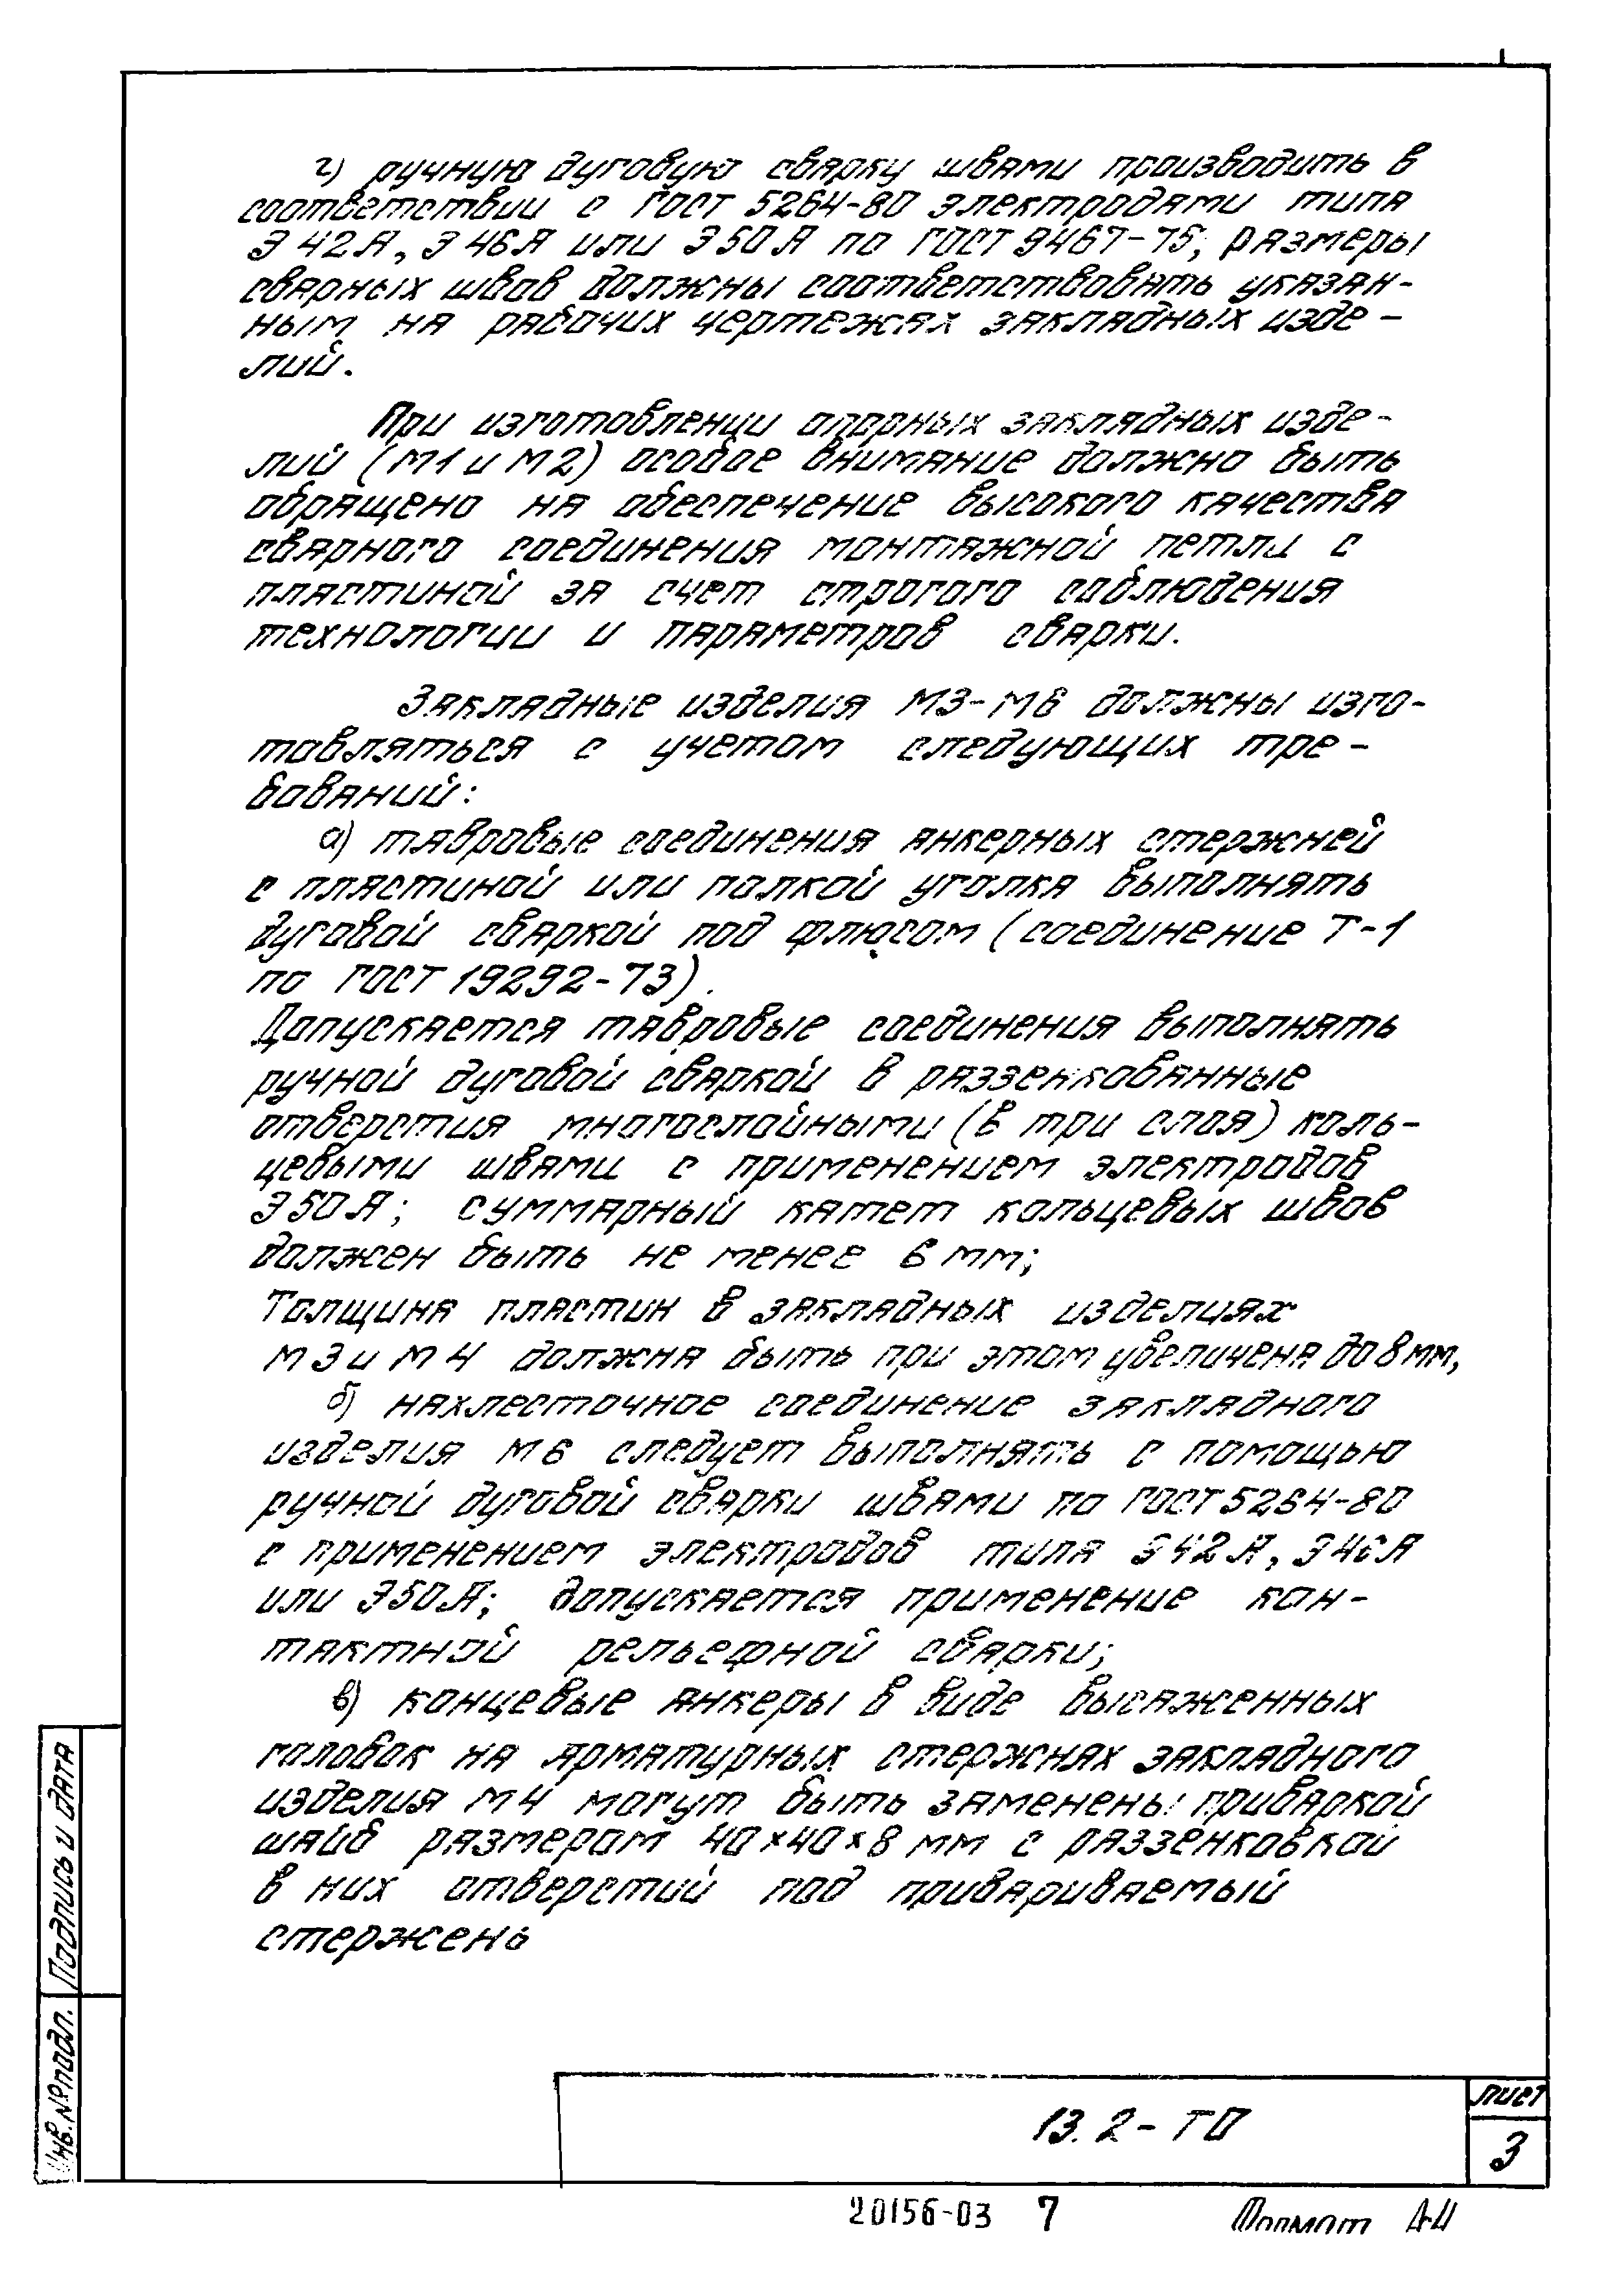 г) ручную дуговую сварку швами производить в
соответствии с ГОСТ 5264-80 электродами типа
Э42А, Э46А или Э50А по ГОСТ 9467-75; размеры
сварных швов должны соответствовать указан-
ным на рабочих чертежах закладных изде-
лий.
При изготовлении опорных закладных изде-
лий (М1 и М2) особое внимание должно быть
обращено на обеспечение высокого качества
сварного соединения монтажной петли с
пластиной за счет строгого соблюдения
технологии и параметров сварки.
Закладные изделия М3-М6 должны изго-
товляться с учетом следующих тре-
бований:
а) тавровые соединения анкерных стержней
с пластиной или полкой уголка выполнять
дуговой сваркой под флюсом (соединение Т-1
по ГОСТ 19292-73).
Допускается тавровые соединения выполнять
ручной дуговой сваркой в раззенкованные
отверстия многослойными (в три слоя) коль-
цевыми швами с применением электродов
Э50А; суммарный катет кольцевых швов
должен быть не менее 6 мм;
Толщина пластин в закладных изделиях
М3 и М4 должна быть при этом увеличена до 8 мм,
б) нахлесточное соединение закладного
изделия М6 следует выполнять с помощью
ручной дуговой сварки швами по ГОСТ 5264-80
с применением электродов типа Э42А, Э46А
или Э50А; допускается применение кон-
тактной рельефной сварки;
в) концевые анкеры в виде высаженных
головок на арматурных стержнях закладного
изделия М4 могут быть заменены приваркой
шайб размером 40×40×8 мм с раззенковкой
в них отверстий под привариваемый
стержень
Инв. № подл. Подпись и дата
13.2-ТО
лист
3
20156-03 7 Формат А4